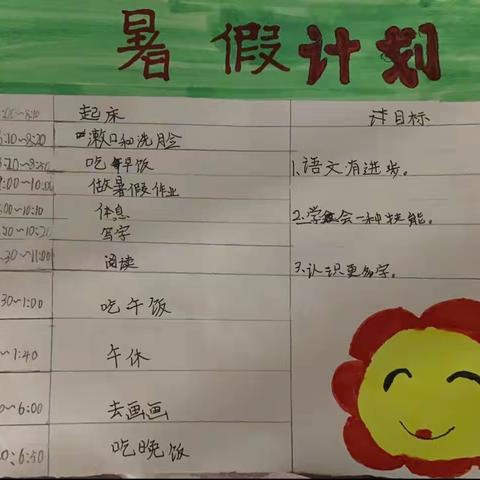 暑假计划
8:10 起床
8:10~8:20 漱口和洗脸
8:20~8:50 吃早饭
9:00~10:00 做暑假作业
10:00~10:10 休息
写字
~11:00 阅读
~1:00 吃午饭
~1:40 午休
~6:00 去画画
6:50 吃晚饭
目标
1.语文有进步。
2.学会一种技能。
3.认识更多字。